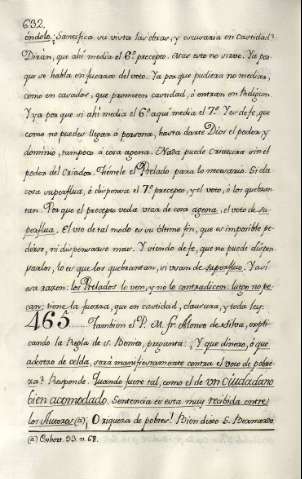 632.
óndola; Santifica su vista las otras, y excusarà en Castidad?
Diràn, que ahi media el 6.º precepto. Acàs esto no sirve. Ya por
que se habla en fuerza del voto. Ya por que pudiera no mediar,
como en casados, que prometen castidad, ò entran en Religion.
Y ya por que si ahi media el 6.º aqui media el 7.º Y es de fe, que
como no puedes llegar à persona, hasta darte Dios el poder, y
dominio; tampoco à cosa agena. Nada puede Criatura sin el
poder del Criador. Tienele el Prelado para lo necesario. Si da
cosa superflua, ò dispensa el 7.º precepto, y el voto, ò los quebran
tan. Por que el precepto veda usar de cosa agena, el voto de su-
perflua. El vio de tal modo es su ultimo fin, que es imposible pe-
dirlos, ni dispensarse mas. Y siendo de fe, que no puede dispen
sarlos, lo es que los quebrantan, si usan de superfluo. Ya si
esa razon: los Prelados lo ven, y no lo contradicen: luego no pe-
can; tiene la fuerza, que en castidad, clausura, y toda ley.
465........ Tambien el P. M. fr. Alonso de Silva, expli
cando la Regla de S. Benito, pregunta: ¿Y que dinero, ò que
adorno de celda, serà manifiestamente contra el voto de pobre
za? Responde. Quando fuere tal, como el de un ciudadano
bien acomodado. Sentencia es esta muy recibida entre
los Autores (a) ¡O riqueza de pobres! Bien dixo S. Bernardo